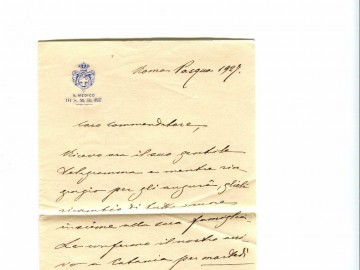 Roma Pasqua 1927.
IL MEDICO
Caro Commendatore,
Ricevo ora il suo gentile
telegramma e mentre rin-
grazio per gli augurî, glieli
ricambio di tutto cuore
insieme alla sua famiglia.
Le confermo il nostro arri-
vo a Catania per martedì